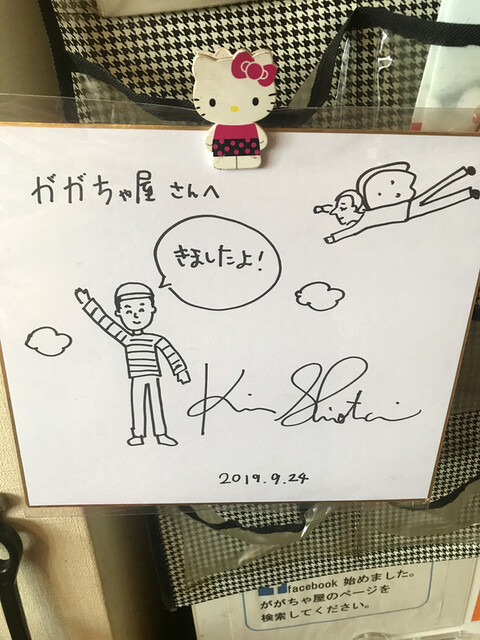 ががちゃ屋 さんへ
きましたよ!
2019.9.24
facebook 始めました。
ががちゃ屋のページを
検索してください。